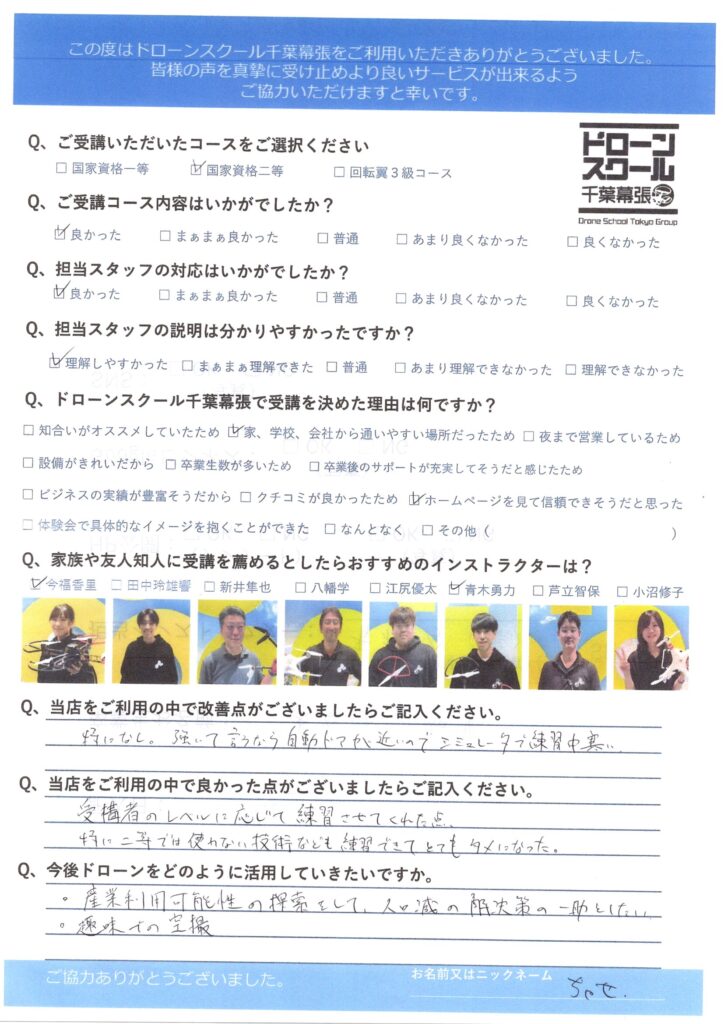 この度はドローンスクール千葉幕張をご利用いただきありがとうございました。
皆様の声を真摯に受け止めより良いサービスが出来るよう
ご協力いただけますと幸いです。
ドローン
スクール
千葉幕張
Drone School Tokyo Group
Q、ご受講いただいたコースをご選択ください
□ 国家資格一等 ☑ 国家資格二等 □ 回転翼３級コース
Q、ご受講コース内容はいかがでしたか？
☑ 良かった □ まぁまぁ良かった □ 普通 □ あまり良くなかった □ 良くなかった
Q、担当スタッフの対応はいかがでしたか？
☑ 良かった □ まぁまぁ良かった □ 普通 □ あまり良くなかった □ 良くなかった
Q、担当スタッフの説明は分かりやすかったですか？
☑ 理解しやすかった □ まぁまぁ理解できた □ 普通 □ あまり理解できなかった □ 理解できなかった
Q、ドローンスクール千葉幕張で受講を決めた理由は何ですか？
□ 知合いがオススメしていたため ☑ 家、学校、会社から通いやすい場所だったため □ 夜まで営業しているため
□ 設備がきれいだから □ 卒業生数が多いため □ 卒業後のサポートが充実してそうだと感じたため
□ ビジネスの実績が豊富そうだから □ クチコミが良かったため ☑ ホームページを見て信頼できそうだと思った
□ 体験会で具体的なイメージを抱くことができた □ なんとなく □ その他（ ）
Q、家族や友人知人に受講を薦めるとしたらおすすめのインストラクターは？
☑ 今福香里 □ 田中玲雄響 □ 新井隼也 □ 八幡学 □ 江尻優太 ☑ 青木勇力 □ 芦立智保 □ 小沼修子
Q、当店をご利用の中で改善点がございましたらご記入ください。
特になし。強いて言うなら自動ドアが近いのでシミュレータで練習中寒い
Q、当店をご利用の中で良かった点がございましたらご記入ください。
受講者のレベルに応じて練習させてくれた点、
特に二等では使わない技術なども練習できてとてもタメになった。
Q、今後ドローンをどのように活用していきたいですか。
・産業利用可能性の探索をして、人口減の解決策の一助としたい
・趣味での空撮
ご協力ありがとうございました。
お名前又はニックネーム